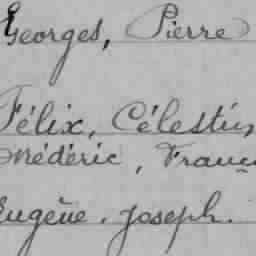 Georges, Pierre
Félix, Célestin
Médéric, Franç
Eugène, Joseph.